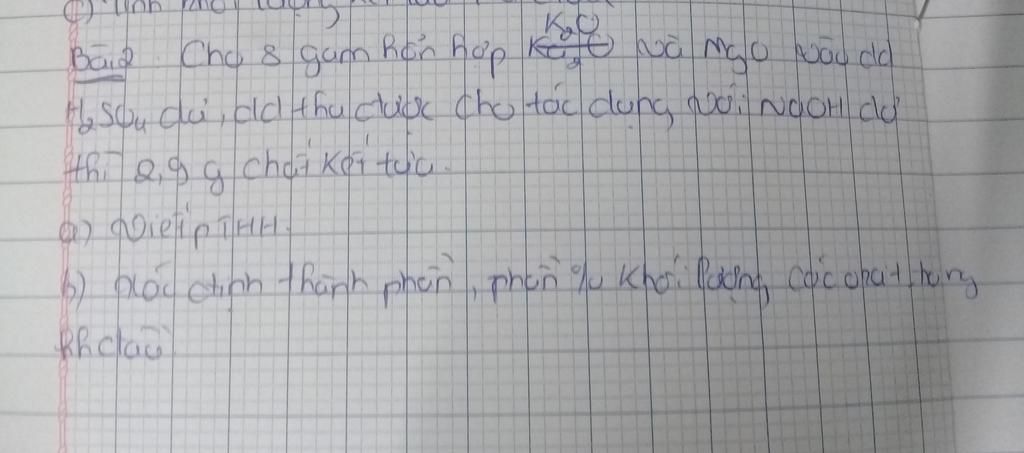 c) tính khối lượng
Bài 2 Cho 8 gam hỗn hợp K2O và MgO vào dd
H2SO4 dư, dd thu được cho tác dụng với NaOH dư
thì 2,9 g chất kết tủa.
a) viết PTHH.
b) xác định thành phần, phần % khối lượng các chất trong
hh đầu